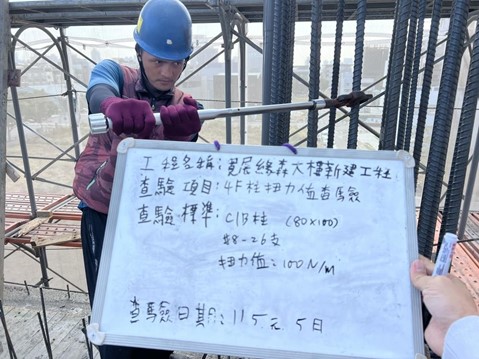 工程名稱:寬展綠森大樓新建工程
查驗項目:4F柱扭力值查驗
查驗標準:C1B柱 (80x100)
#8-26支
扭力值:100N/m
查驗日期:115元 5日